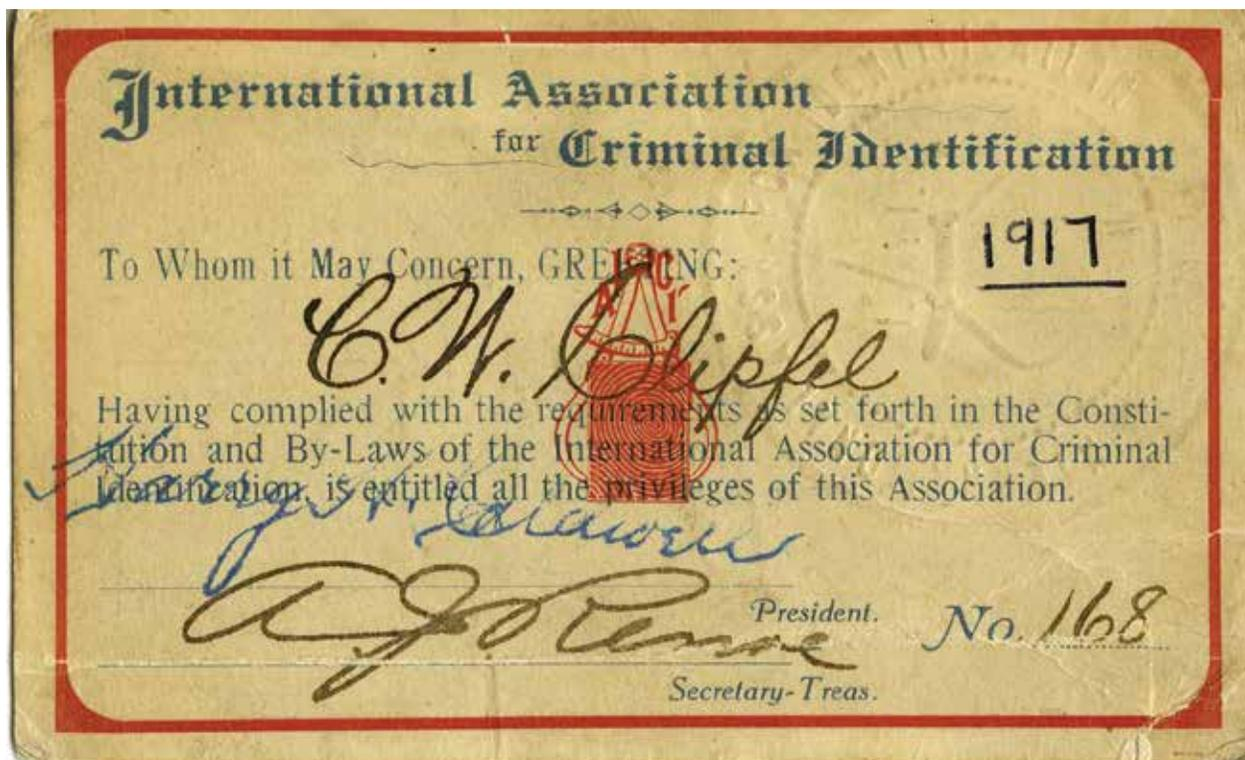 International Association
for Criminal Identification
1917
To Whom it May Concern, GREETING:
I A C I
C. W. Clipfel
Having complied with the requirements as set forth in the Consti-
tution and By-Laws of the International Association for Criminal
Identification, is entitled all the privileges of this Association.
Harry H. Caldwell
President.
No. 168
A. J. Renoe
Secretary-Treas.